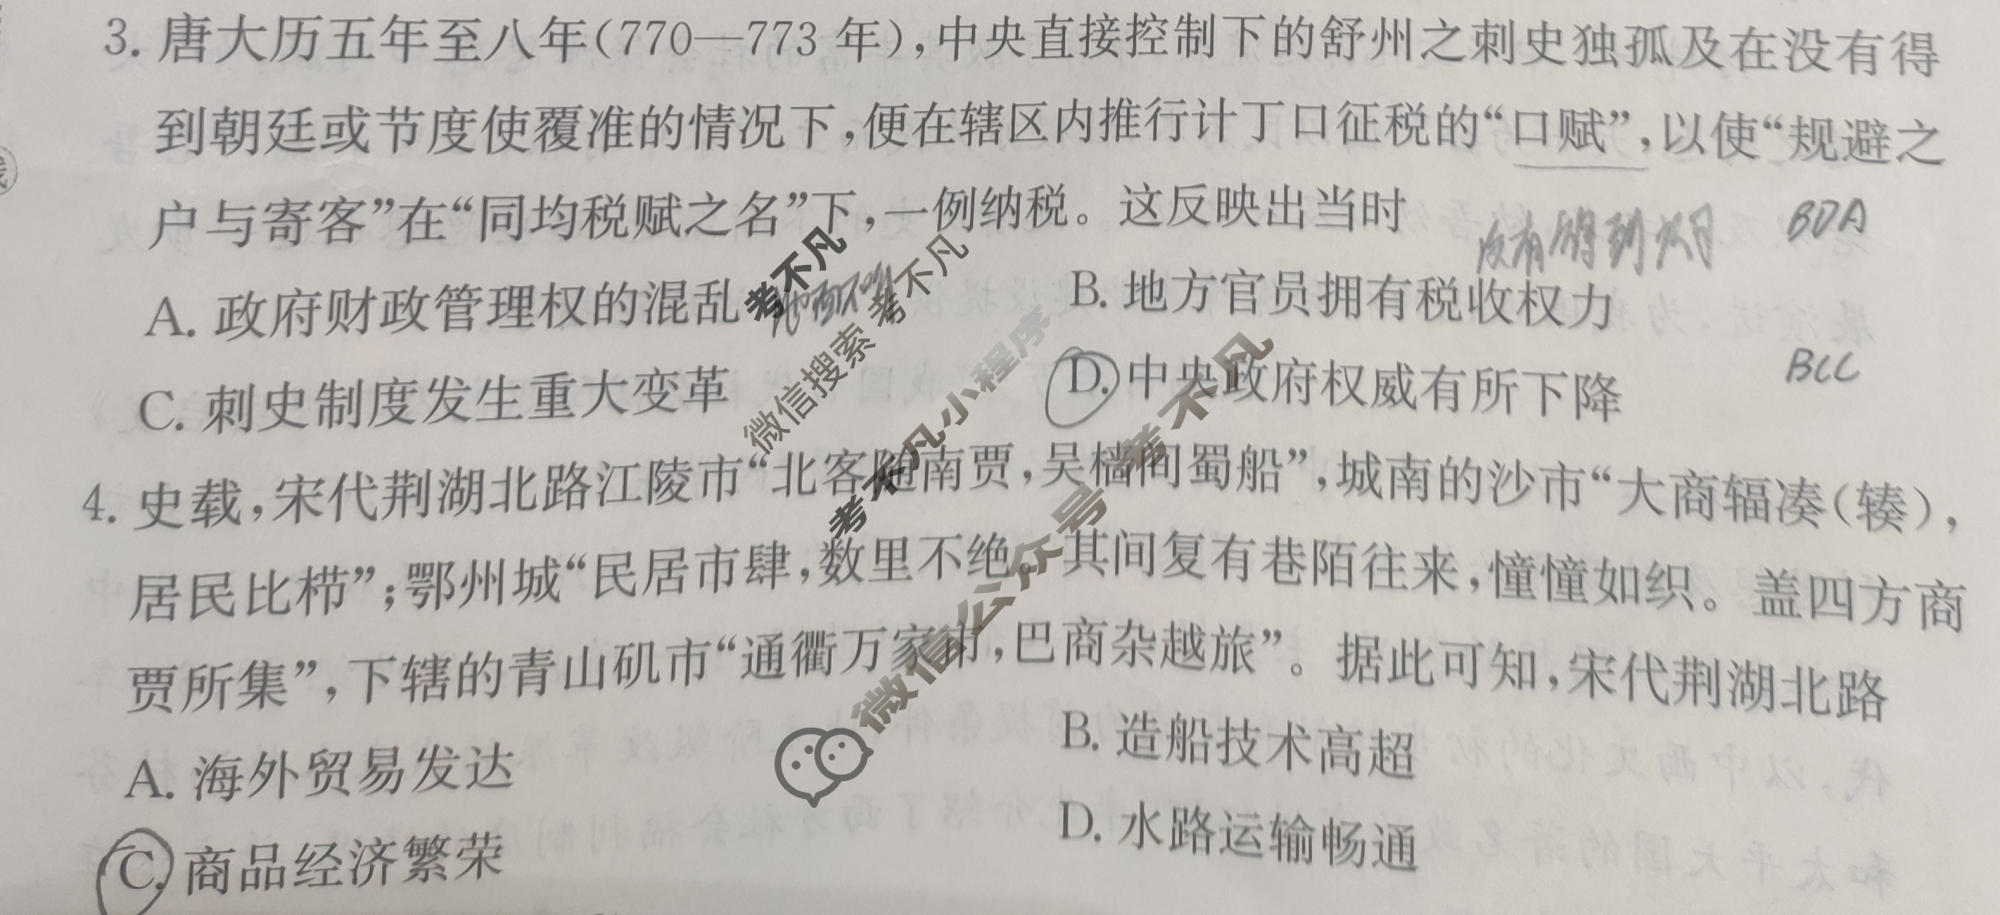 3. 唐大历五年至八年(770—773 年),中央直接控制下的舒州之刺史独孤及在没有得
到朝廷或节度使覆准的情况下,便在辖区内推行计丁口征税的“口赋”,以使“规避之
户与寄客”在“同均税赋之名”下,一例纳税。这反映出当时
没有得到 BDA
A. 政府财政管理权的混乱
B. 地方官员拥有税收权力
C. 刺史制度发生重大变革
D. 中央政府权威有所下降
BCC
4. 史载,宋代荆湖北路江陵市“北客随南贾,吴樯间蜀船”,城南的沙市“大商辐凑(辏),
居民比栉”;鄂州城“民居市肆,数里不绝。其间复有巷陌往来,憧憧如织。盖四方商
贾所集”,下辖的青山矶市“通衢万家市,巴商杂越旅”。据此可知,宋代荆湖北路
A. 海外贸易发达
B. 造船技术高超
C. 商品经济繁荣
D. 水路运输畅通
考不凡
微信搜索 考不凡
考不凡小程序
微信公众号 考不凡